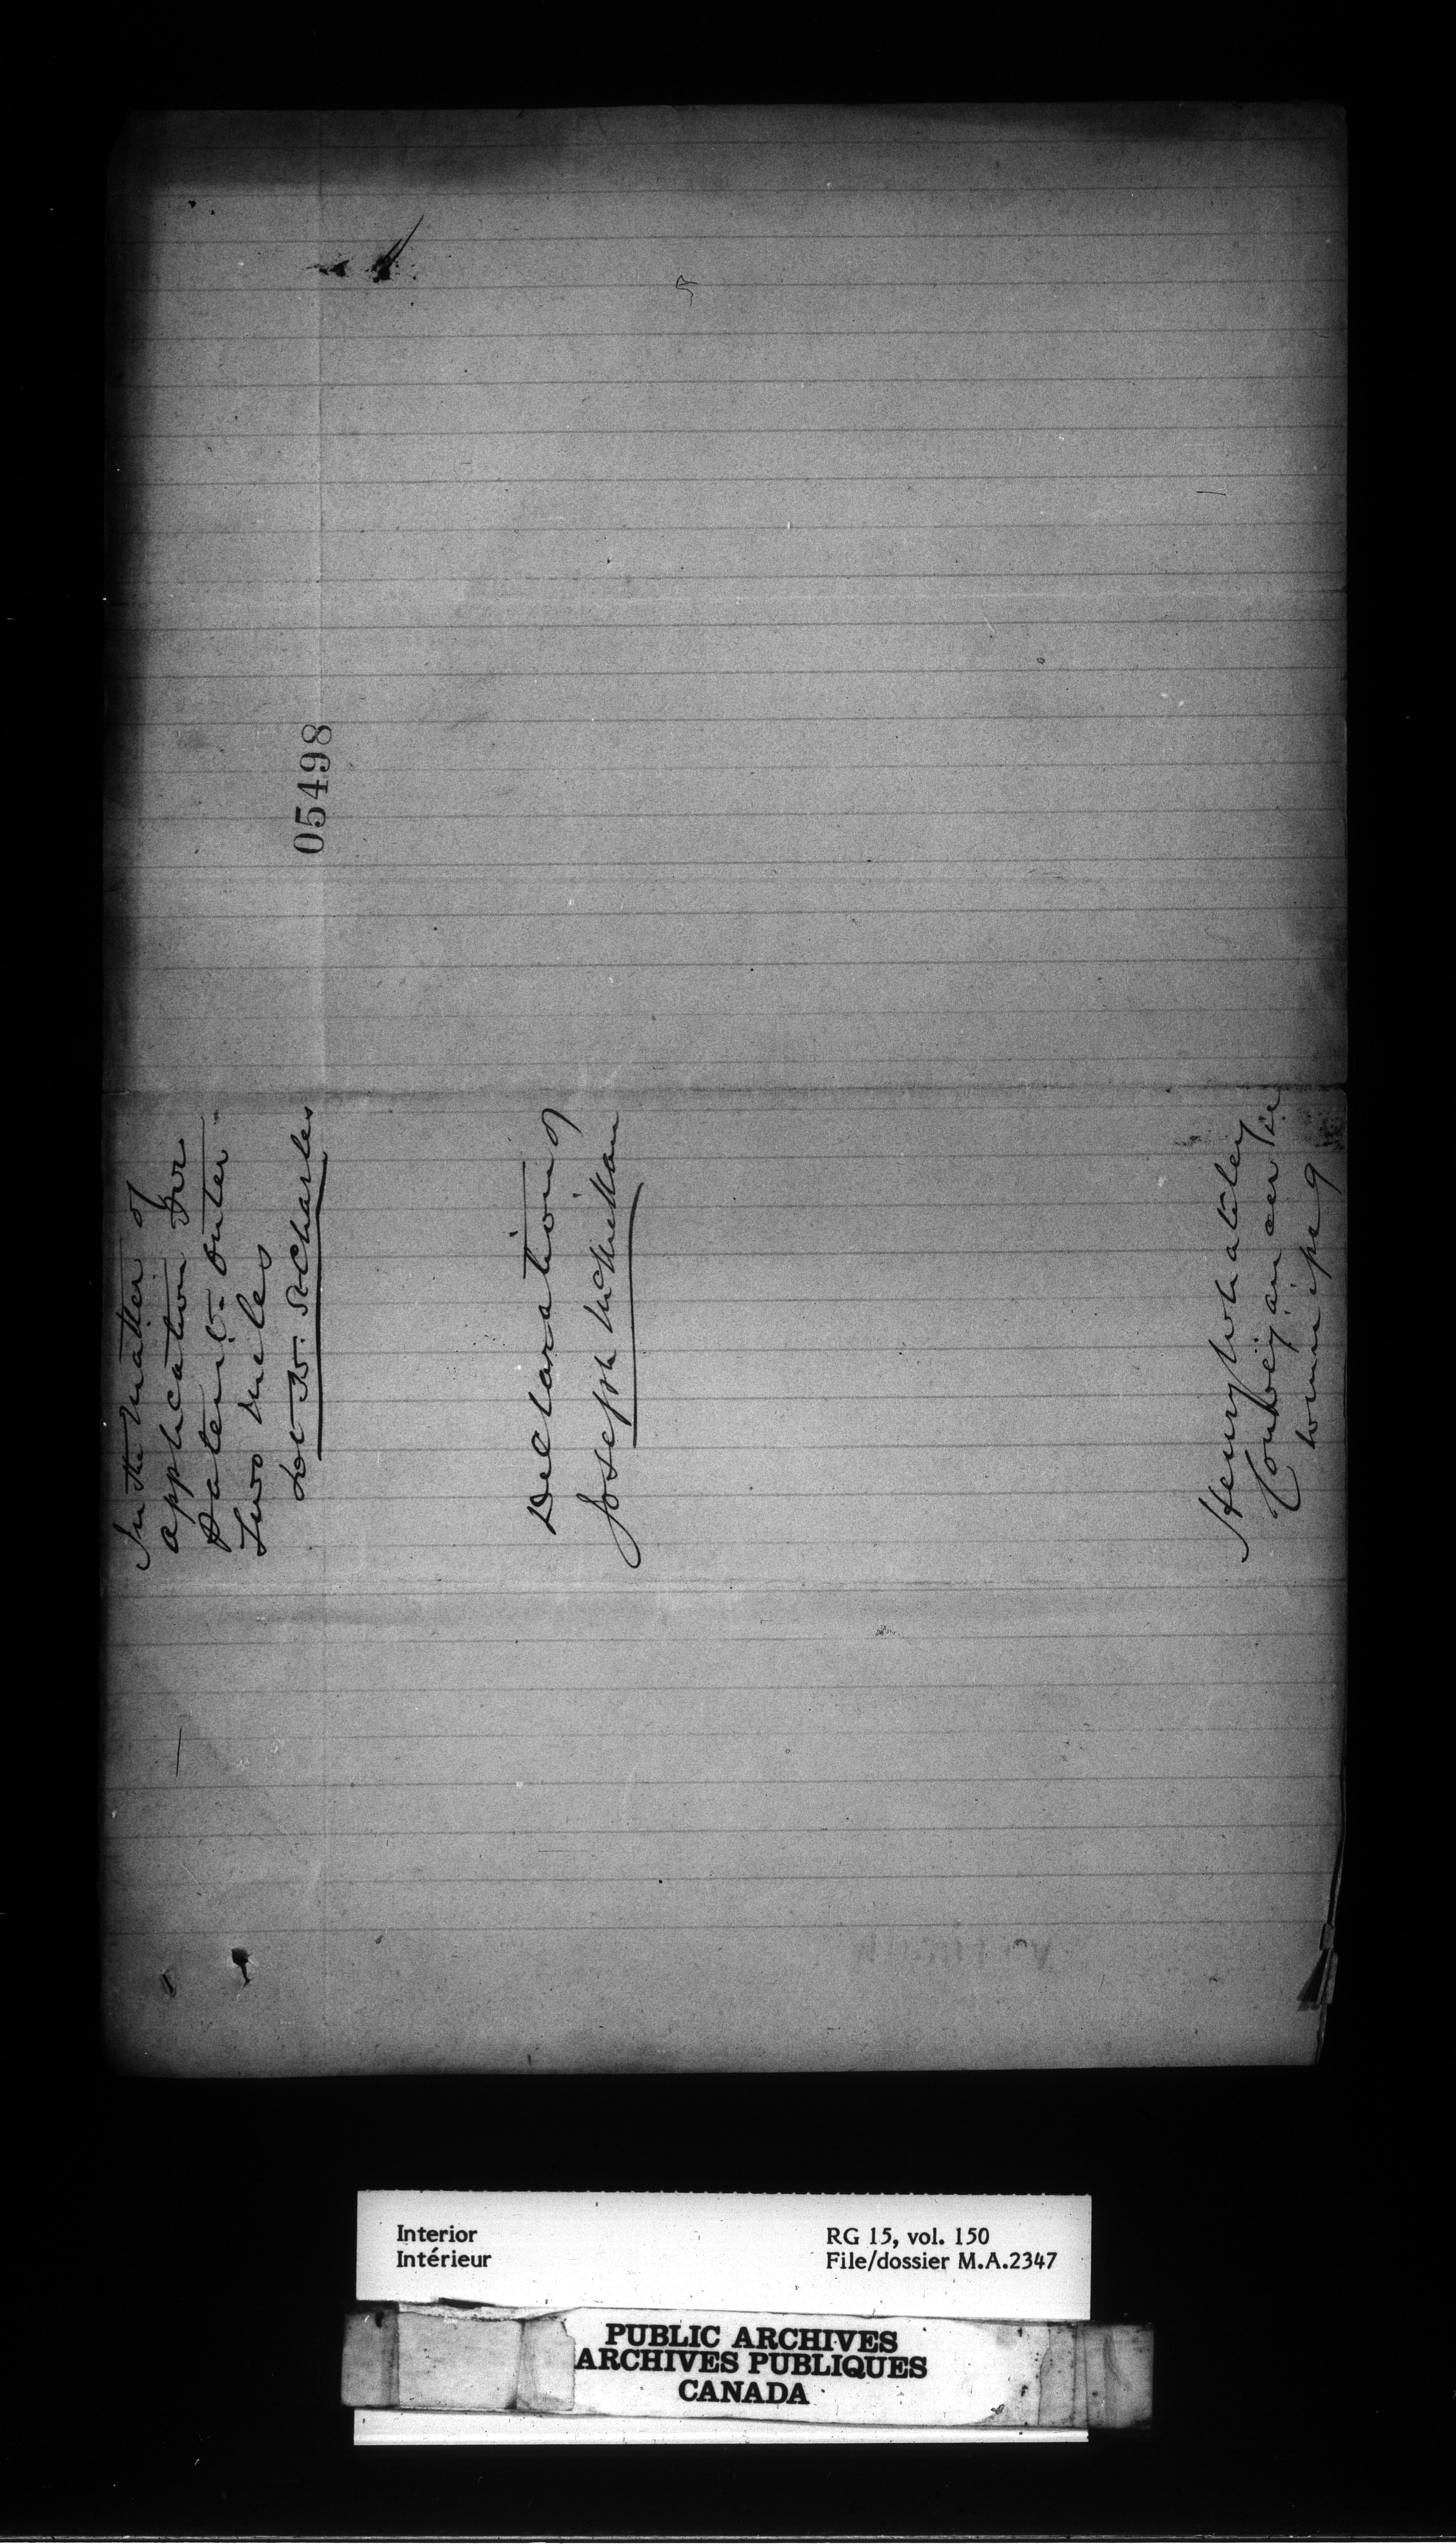 In the Matter of
application for
Patent - Outer
Two Miles
Lot 35 St Charles
05498
Declaration of
Joseph McMillan
Henry Whatley
Conveyancer &c
Winnipeg
Interior
Intérieur
RG 15, vol. 150
File/dossier M.A.2347
PUBLIC ARCHIVES
ARCHIVES PUBLIQUES
CANADA